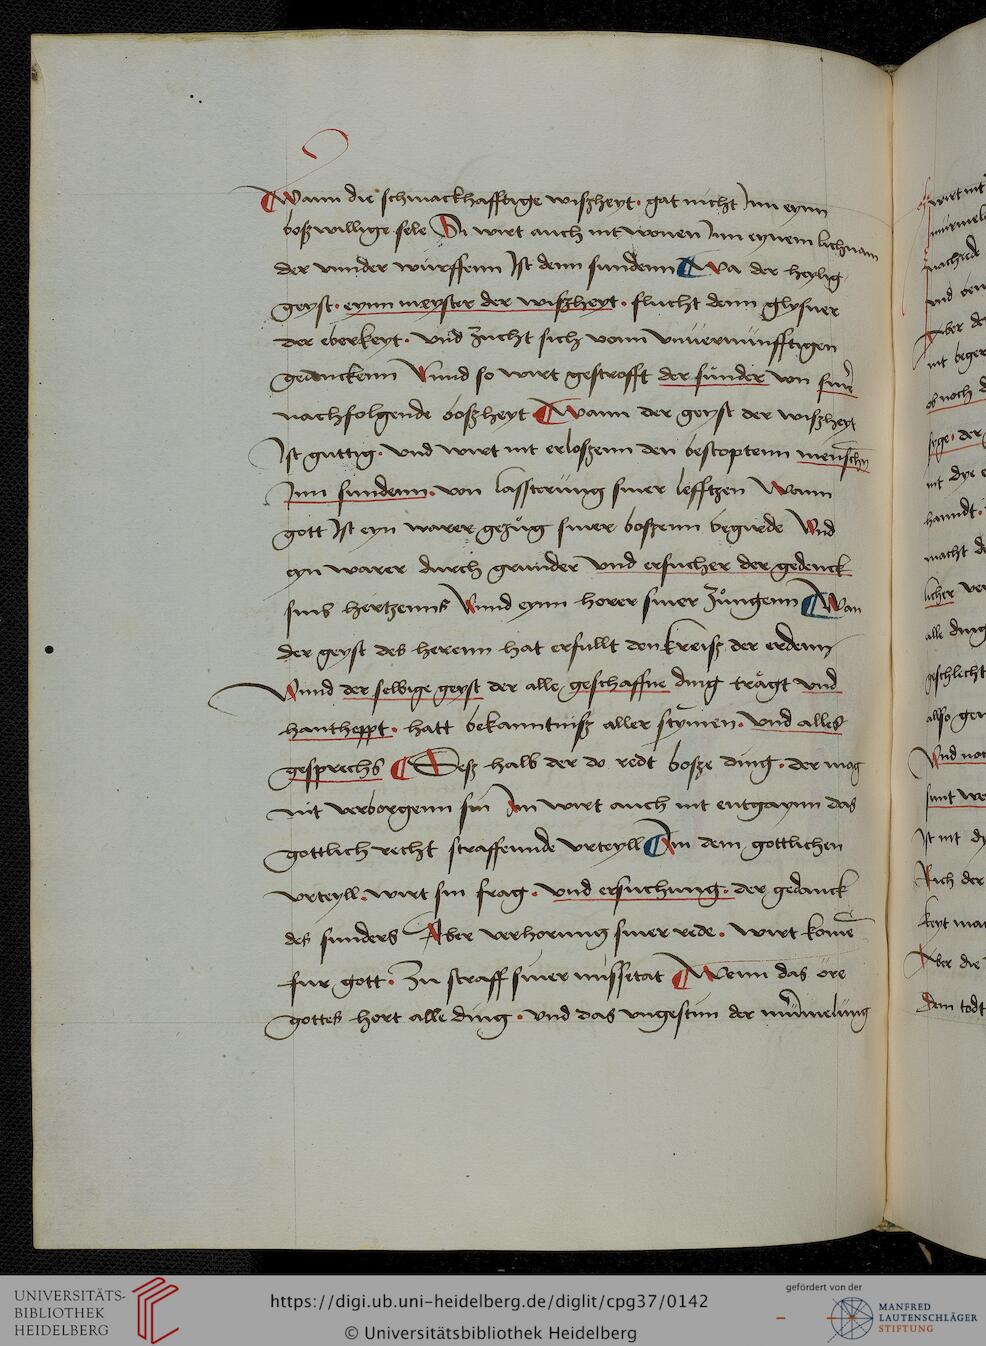 Wann die schmackhafftige wißheyt · gat nicht Inn eynn
boßwillige sele Si wirt auch nit wonen Inn eynem lichnam
der vnnder würffenn Ist denn sundenn Wa der heylig
geyst · eynn meyster der wißheyt · flucht denn glyßner
der eberkeyt · vnd zucht sich vonn vnuernünfftigen
gedenckenn Vnnd so wirt gestrofft der sünder von siner
nachfolgende boßheyt Wann der geyst der wißheyt
Ist guttig · vnd wirt nit erloßenn den bestoptenn menschen
Inn sundenn · von lasstrüng siner lefftzen Wann
gott Ist eyn warer gezüg siner boßenn begirde Vnd
eyn warer durch grunder vnd ersucher der gedenck
sins hertzenns Vnnd eynn horer siner Züngenn Wan
der geyst des herenn hat erfullt den kreiß der erdenn
Vnnd der selbige geyst der alle geschaffne ding trägt vnd
hantheppt · hatt bekanntniß aller stymen · vnd alles
gesprechs Deß halb der do redt boße ding · der mag
nit verborgenn sin Im wirt auch nit entgaynn das
gottlich recht straffennde vrteyll An dem gottlichen
vrteyll · wirt sin frag · vnd ersuchung · der gedanck
des sunders Aber verhorung siner rede · wirt kome
fur gott · Zu straff siner missetat Wenn das ore
gottes hort alle ding · vnd das vngestim der mürmelüng
UNIVERSITÄTS-
BIBLIOTHEK
HEIDELBERG
https://digi.ub.uni-heidelberg.de/diglit/cpg37/0142
© Universitätsbibliothek Heidelberg
gefördert von der
MANFRED
LAUTENSCHLÄGER
STIFTUNG